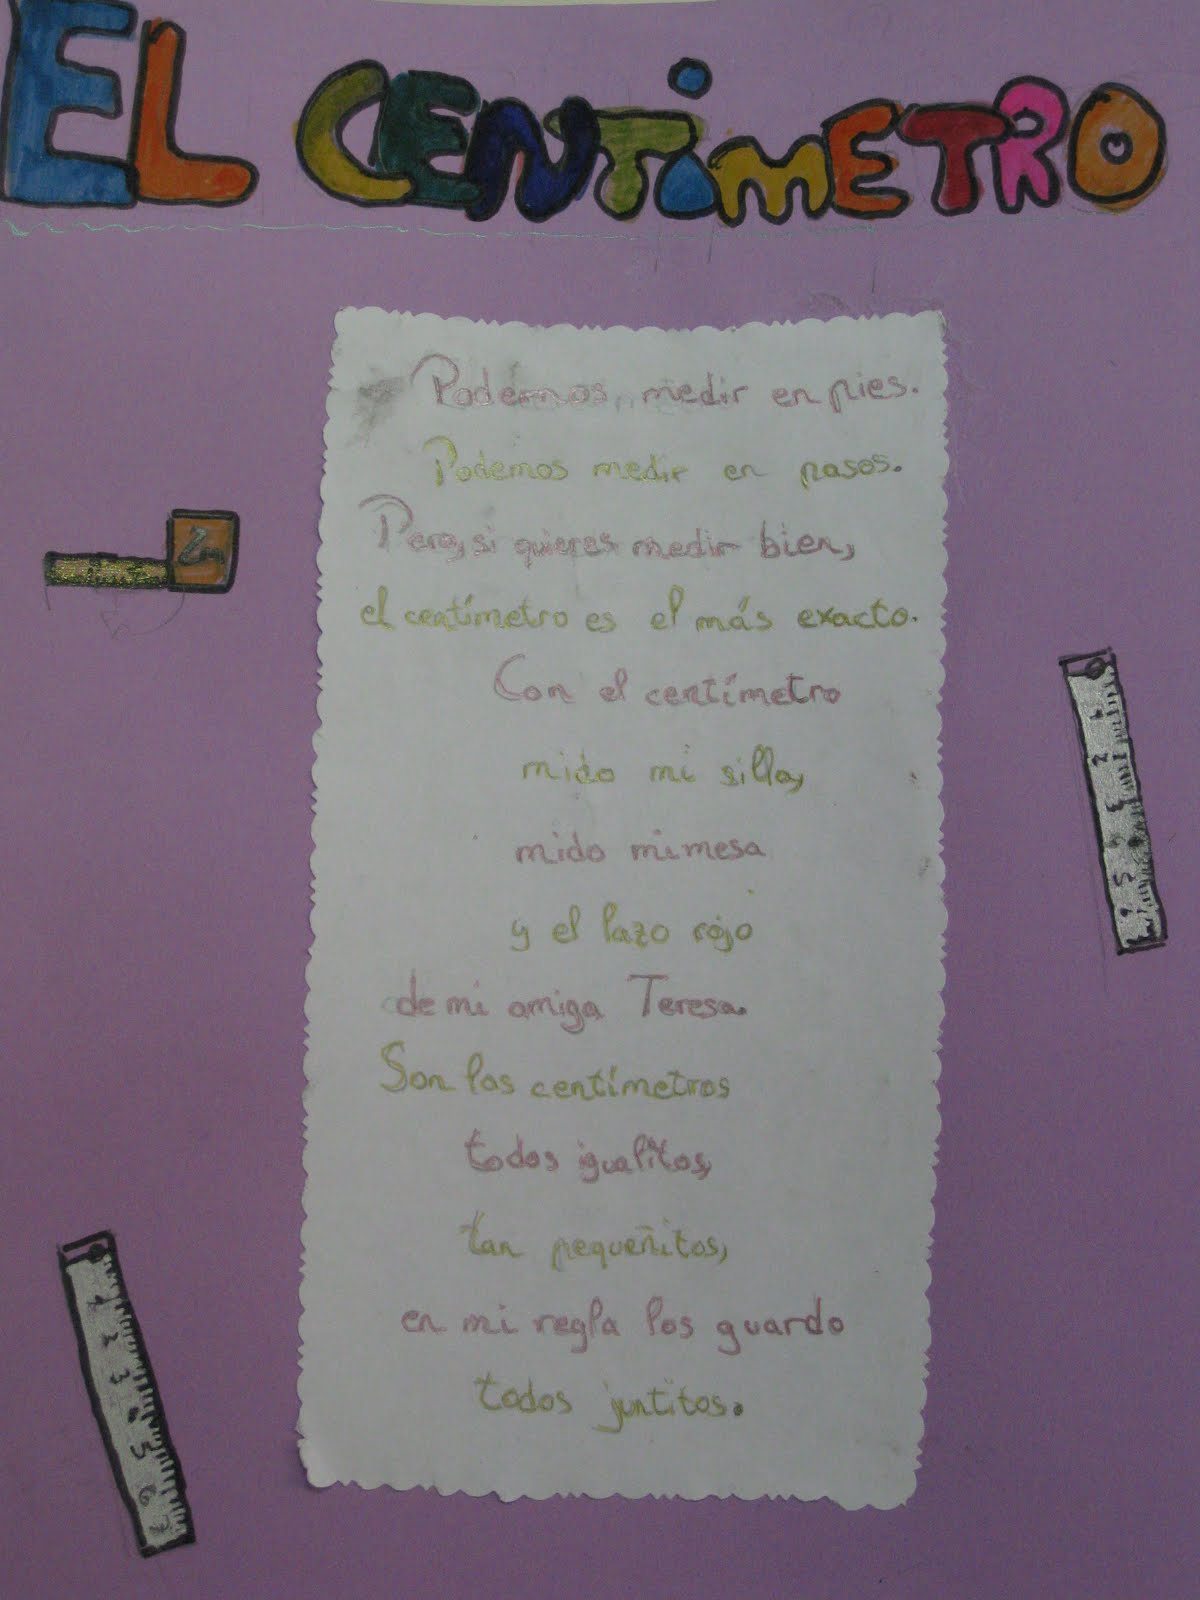 EL CENTíMETRO
Podemos medir en pies.
Podemos medir en pasos.
Pero, si quieres medir bien,
el centímetro es el más exacto.
Con el centímetro
mido mi silla,
mido mi mesa
y el lazo rojo
de mi amiga Teresa.
Son los centímetros
todos igualitos,
tan pequeñitos,
en mi regla los guardo
todos juntitos.